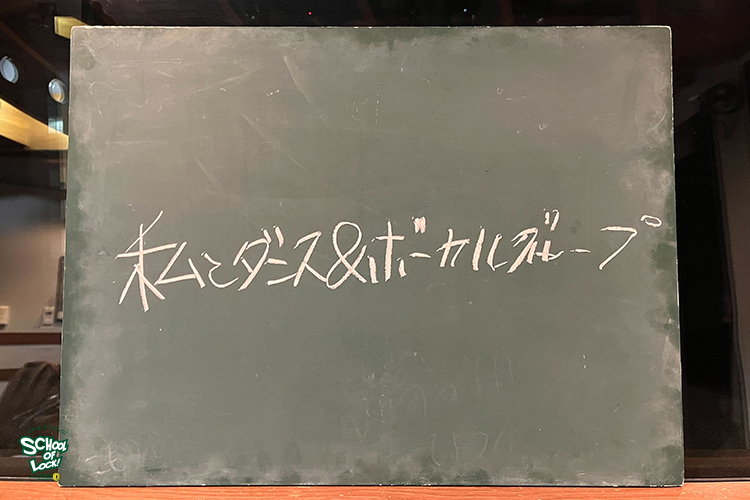 私とダンス&ボーカルグループ
SCHOOL
OF
LOCK!